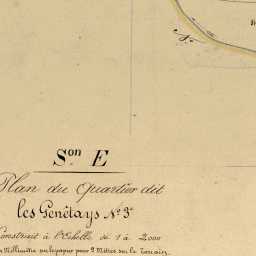 S.on E
Plan du Quartier dit
les Genêtays N.o 3.e
Construit à l'Echelle de 1 à 2000
Millimètre sur le papier pour 2 Mètres sur le Terrain